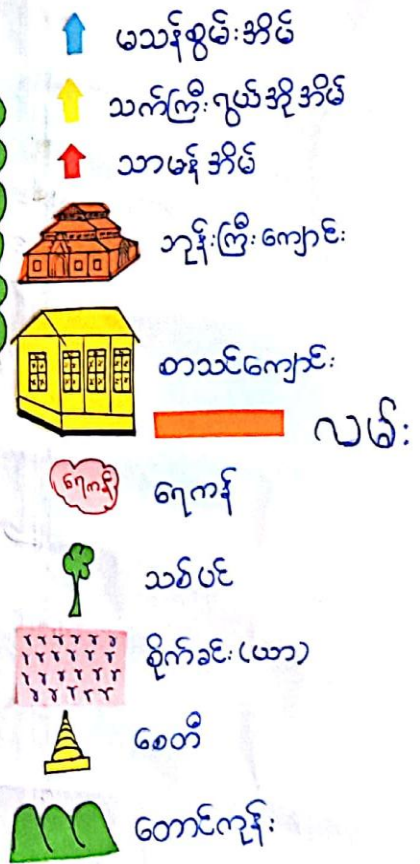 မသန်စွမ်းအိမ်
သက်ကြီးရွယ်အိုအိမ်
သာမန်အိမ်
ဘုန်းကြီးကျောင်း
စာသင်ကျောင်း
လမ်း
ရေကန်
ရေကန်
သစ်ပင်
စိုက်ခင်း(ယာ)
စေတီ
တောင်ကုန်း